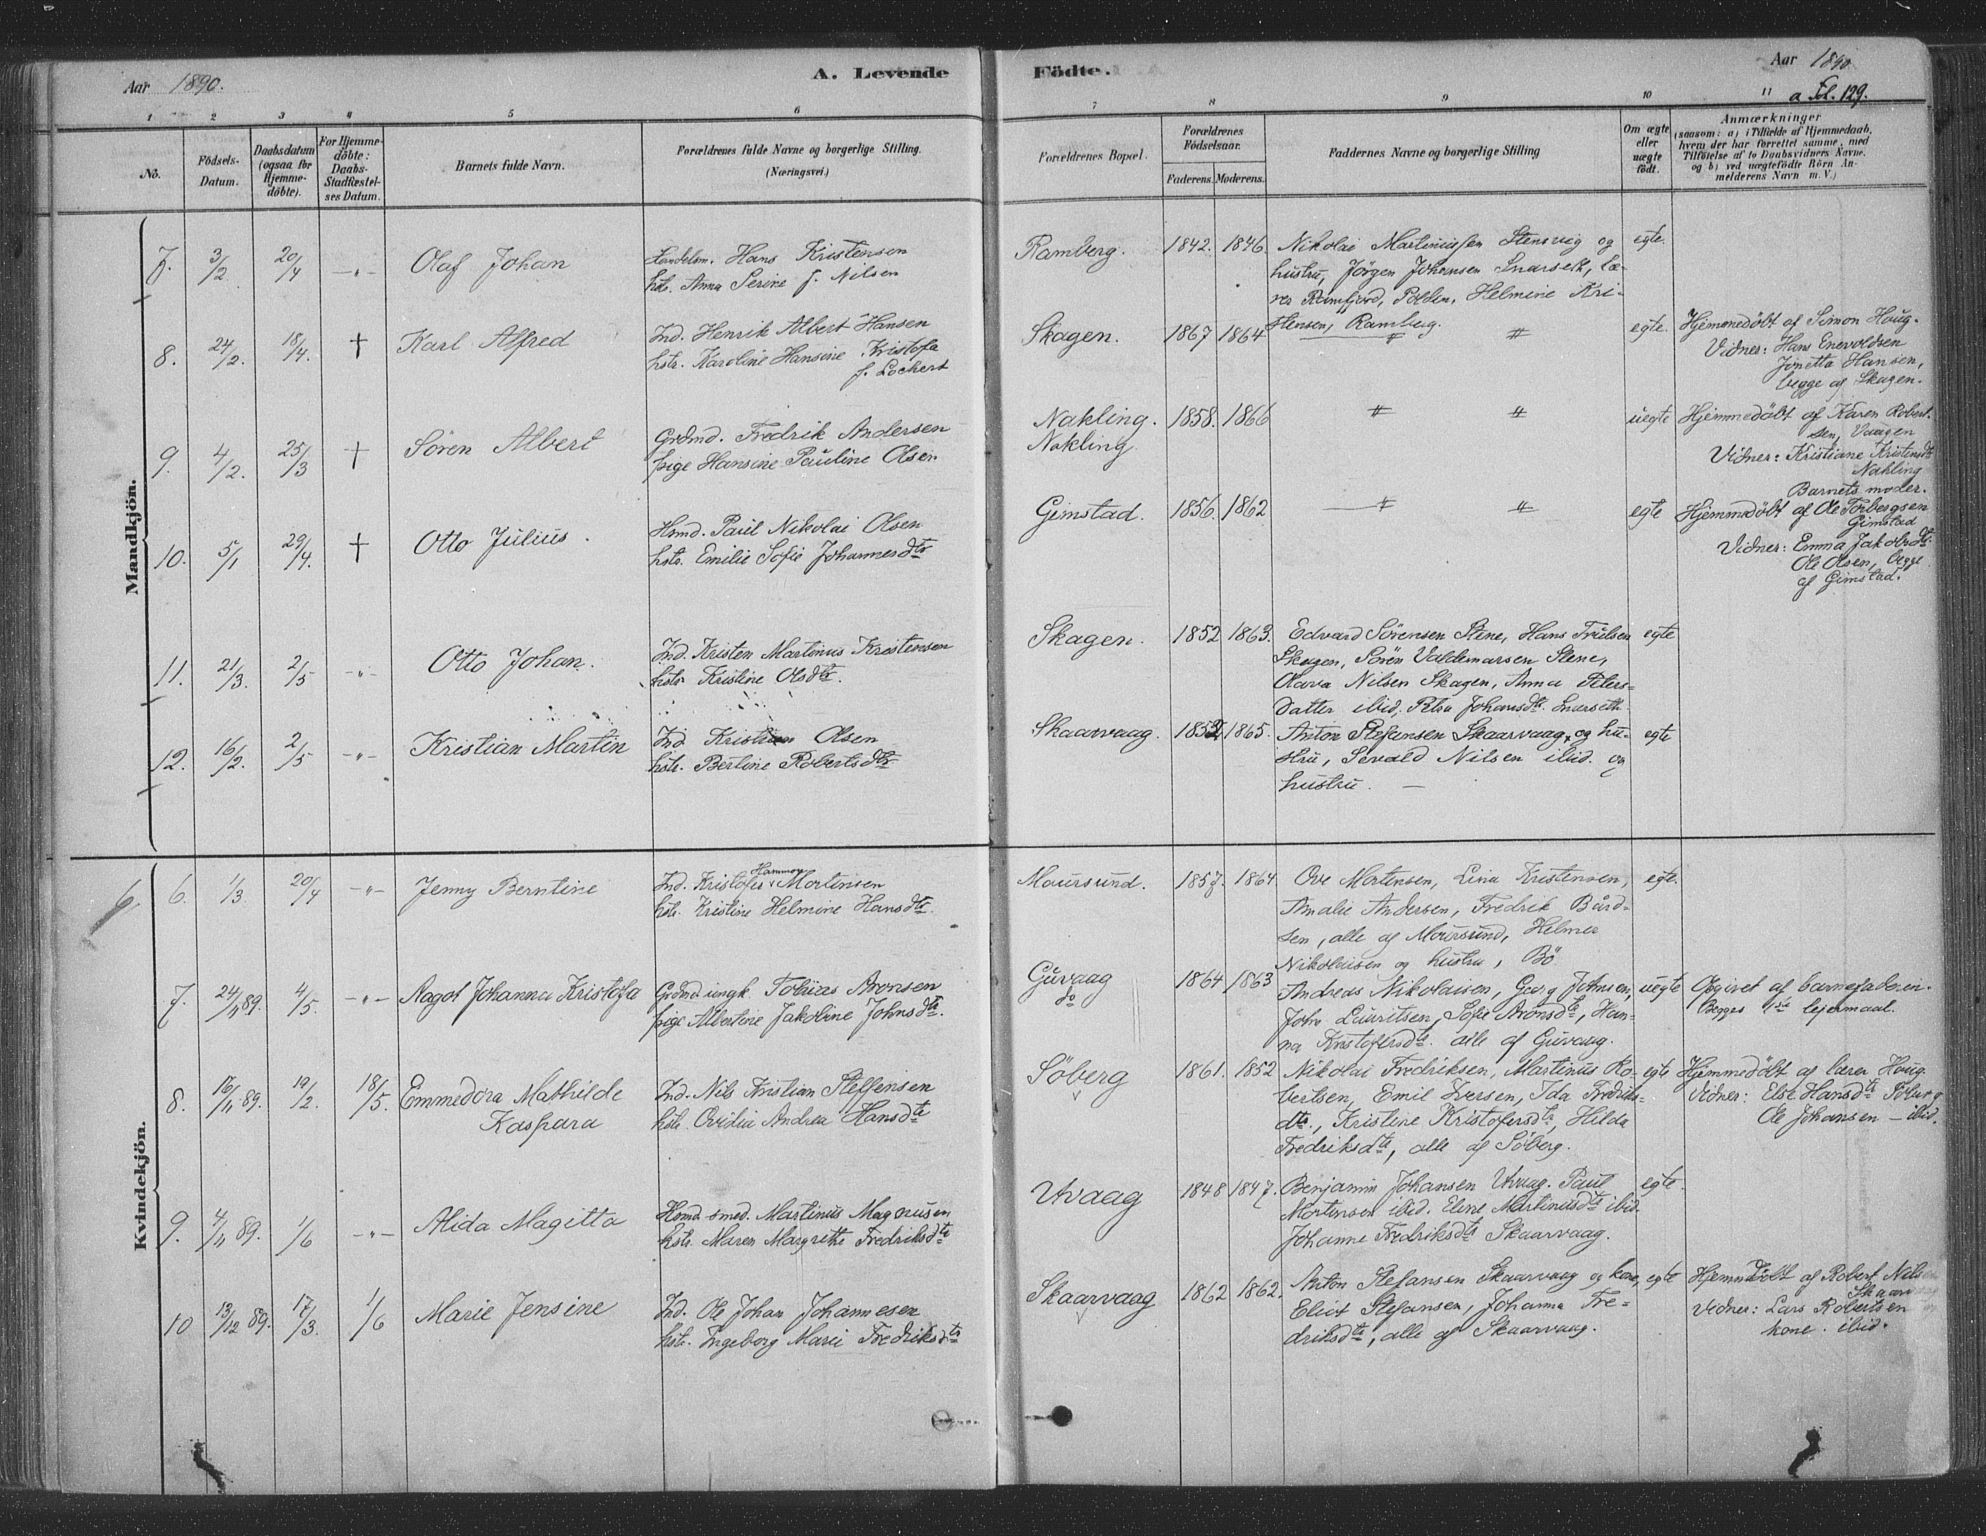 Aar 1890.
A. Levende
Födte.
Aar 1890.
a Fol. 129.
1 2 3 4 5 6 7 8 9 10 11
No.
Födsels-Datum.
Daabsdatum (ogsaa for Hjemme-döbte).
For Hjemme-döbte: Daabs-Stadfæstel-ses Datum.
Barnets fulde Navn.
Forældrenes fulde Navne og borgerlige Stilling. (Næringsvei.)
Forældrenes Bopæl.
Forældrenes Födselsaar.
Faderens. Moderens.
Faddernes Navne og borgerlige Stilling
Om ægte eller uægte födt.
Anmærkninger
(saasom: a) i Tilfælde af Hjemmedaab,
hvem der har forrettet samme, med
Tilföielse af to Daabsvidners Navne.
og b) ved uægtefödte Börn An-
melderens Navn m. V.)
Mandkjön.
7. 3/2 20/4 -"- Olaf Johan
Handelsm. Hans Kristensen
hstr. Anna Serine f. Nilsen
Ramberg. 1842. 1846.
Nikolai Martinussen Stensvig og
hustru, Jørgen Johansen Snarseth, Læ-
rer Ramfjord, Polden, Helmine Kri-
stensen, Ramberg.
egte.
8. 24/2. 18/4. † Karl Alfred
Ind. Henrik Albert Hansen
hstr. Karoline Hansine Kristofa
f. Lochert
Skagen. 1867 1864 " "
egte.
Hjemmedöbt af Simon Houg.
Vidner: Hans Enevoldsen
Jonetta Hansen,
begge af Skagen.
9. 4/2. 25/3 † Sören Albert
Grdmd. Fredrik Andersen
pige Hansine Pauline Olsen
Nakling. 1858. 1866 " "
Nakling.
uegte
Hjemmedöbt af Karen Robert-
sen, Vaagen
Vidner: Kristiane Kristensdtr
Nakling
Barnets moder.
10. 5/1 29/4. † Otto Julius.
Hsmd. Paul Nikolai Olsen
hstr. Emilie Sofie Johannesdtr
Gimstad. 1856. 1862 " "
egte
Hjemmedöbt af Ole Torbergsen
Gimstad
Vidner: Emma Jakobsdtr
Ole Olsen, begge
af Gimstad.
11. 21/3. 2/5 -"- Otto Johan.
Ind. Kristen Martinus Kristensen
hstr. Kristine Olsdtr.
Skagen. 1852 1863.
Edvard Sörensen Stene, Hans Trulsen
Skagen, Sören Valdemarsen Stene,
Olava Nilsen Skagen, Anna Peters-
datter ibid, Petra Johansdtr. Snarseth.
egte
12. 16/2. 2/5 -"- Kristian Martin
Ind Kristian Olsen
hstr. Bertine Robertsdtr
Skaarvaag. 1865.
Anton Stefensen Skaarvaag, og hu-
stru, Sevald Nilsen ibid. og
hustru. —
egte
Kvindekjön.
6.
6. 1/3. 20/4 -"- Jenny Berntine
Hammer
Ind. Kristofer Mortensen
hstr. Kristine Helmine Hansdtr.
Maursund. 1857. 1864
Ove Mortensen, Lina Kristensen,
Amalie Andersen, Fredrik Bård-
sen, alle af Maursund, Helmer
Nikolaisen og hustru, Bö
egte.
7. 24/11 89. 4/5. -"- Aagot Johanna Kristofa
Grdmd ungk Tobias Aronsen
pige Albertine Jakobine Johnsdtr.
Guvaag 1864 1863
do
Andreas Nikolaisen, Georg Johnsen,
John Lauritsen, Sofie Aronsdtr, Han-
na Kristofersdtr. alle af Guvaag.
uegte
Opgivet af barnefaderen.
Begges 1ste lejermaal.
8. 16/11 89. 19/2. 18/5. Emmedora Mathilde
Kaspara
Ind. Nils Kristian Steffensen
hstr. Ovidia Andrea Hansdtr
Söberg 1861. 1852
Nikolai Fredriksen, Martinus Ro-
bertsen, Emil Iversen, Ida Fredriks-
dtr., Kristine Kristofersdtr, Hilda
Fredriksdtr, alle af Söberg.
egte
Hjemmedöbt af lærer Houg.
Vidner: Else Hansdtr Söberg
Ole Johansen — ibid.
9. 4/11 89. 1/6 -"- Alida Magitta
Hsmd smed. Martinus Magnusen
hstr. Maren Margrethe Fredriksdtr
Utvaag 1848 1847.
Benjamin Johansen Utvaag. Paul
Mortensen ibid. Eline Martinusdtr ibid.
Johanne Fredriksdtr Skaarvaag.
egte.
10 13/12 89. 17/3. 1/6 Marie Jensine
Ind. Ole Johan Johannesen
hstr. Ingeborg Marie Fredriksdtr
Skaarvaag 1862 1862.
Anton Stefansen Skaarvaag og kone,
Eliot Stefansen, Johanna Fre-
driksdtr, alle af Skaarvaag.
egte
Hjemmdöbt af Robert Nilsen
Skaarvaag
Vidner: Lars Robertsen og
kone. ibid.